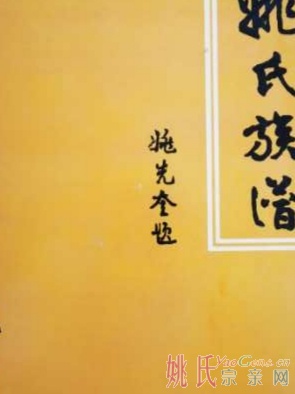 姚氏族谱
姚先奎题
姚氏宗亲网
YaoCens.cn